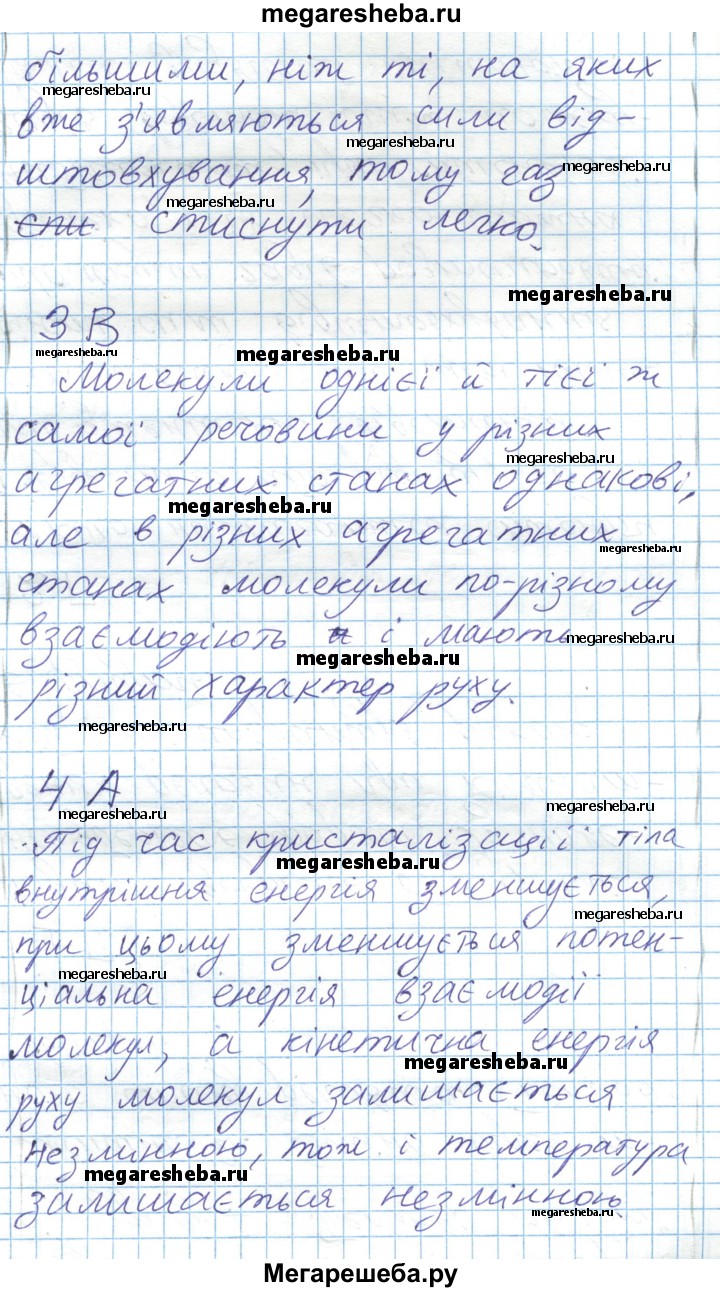 megaresheba.ru
більшими, ніж ті, на яких
megaresheba.ru
вже з'являються сили від-
megaresheba.ru
штовхування, тому газ
megaresheba.ru
megaresheba.ru
стиснути легко.
megaresheba.ru
3 В
megaresheba.ru
megaresheba.ru
Молекули однієї й тієї ж
самої речовини у різних
megaresheba.ru
агрегатних станах однакові,
megaresheba.ru
але в різних агрегатних
megaresheba.ru
станах молекули по-різному
взаємодіють і мають
megaresheba.ru
megaresheba.ru
різний характер руху.
megaresheba.ru
4 А
megaresheba.ru
megaresheba.ru
Під час кристалізації тіла
megaresheba.ru
внутрішня енергія зменшується,
megaresheba.ru
при цьому зменшується потен-
megaresheba.ru
ціальна енергія взаємодії
молекул, а кінетична енергія
megaresheba.ru
руху молекул залишається
незмінною, тож і температура
megaresheba.ru
залишається незмінною.
megaresheba.ru
Мегарешеба.ру